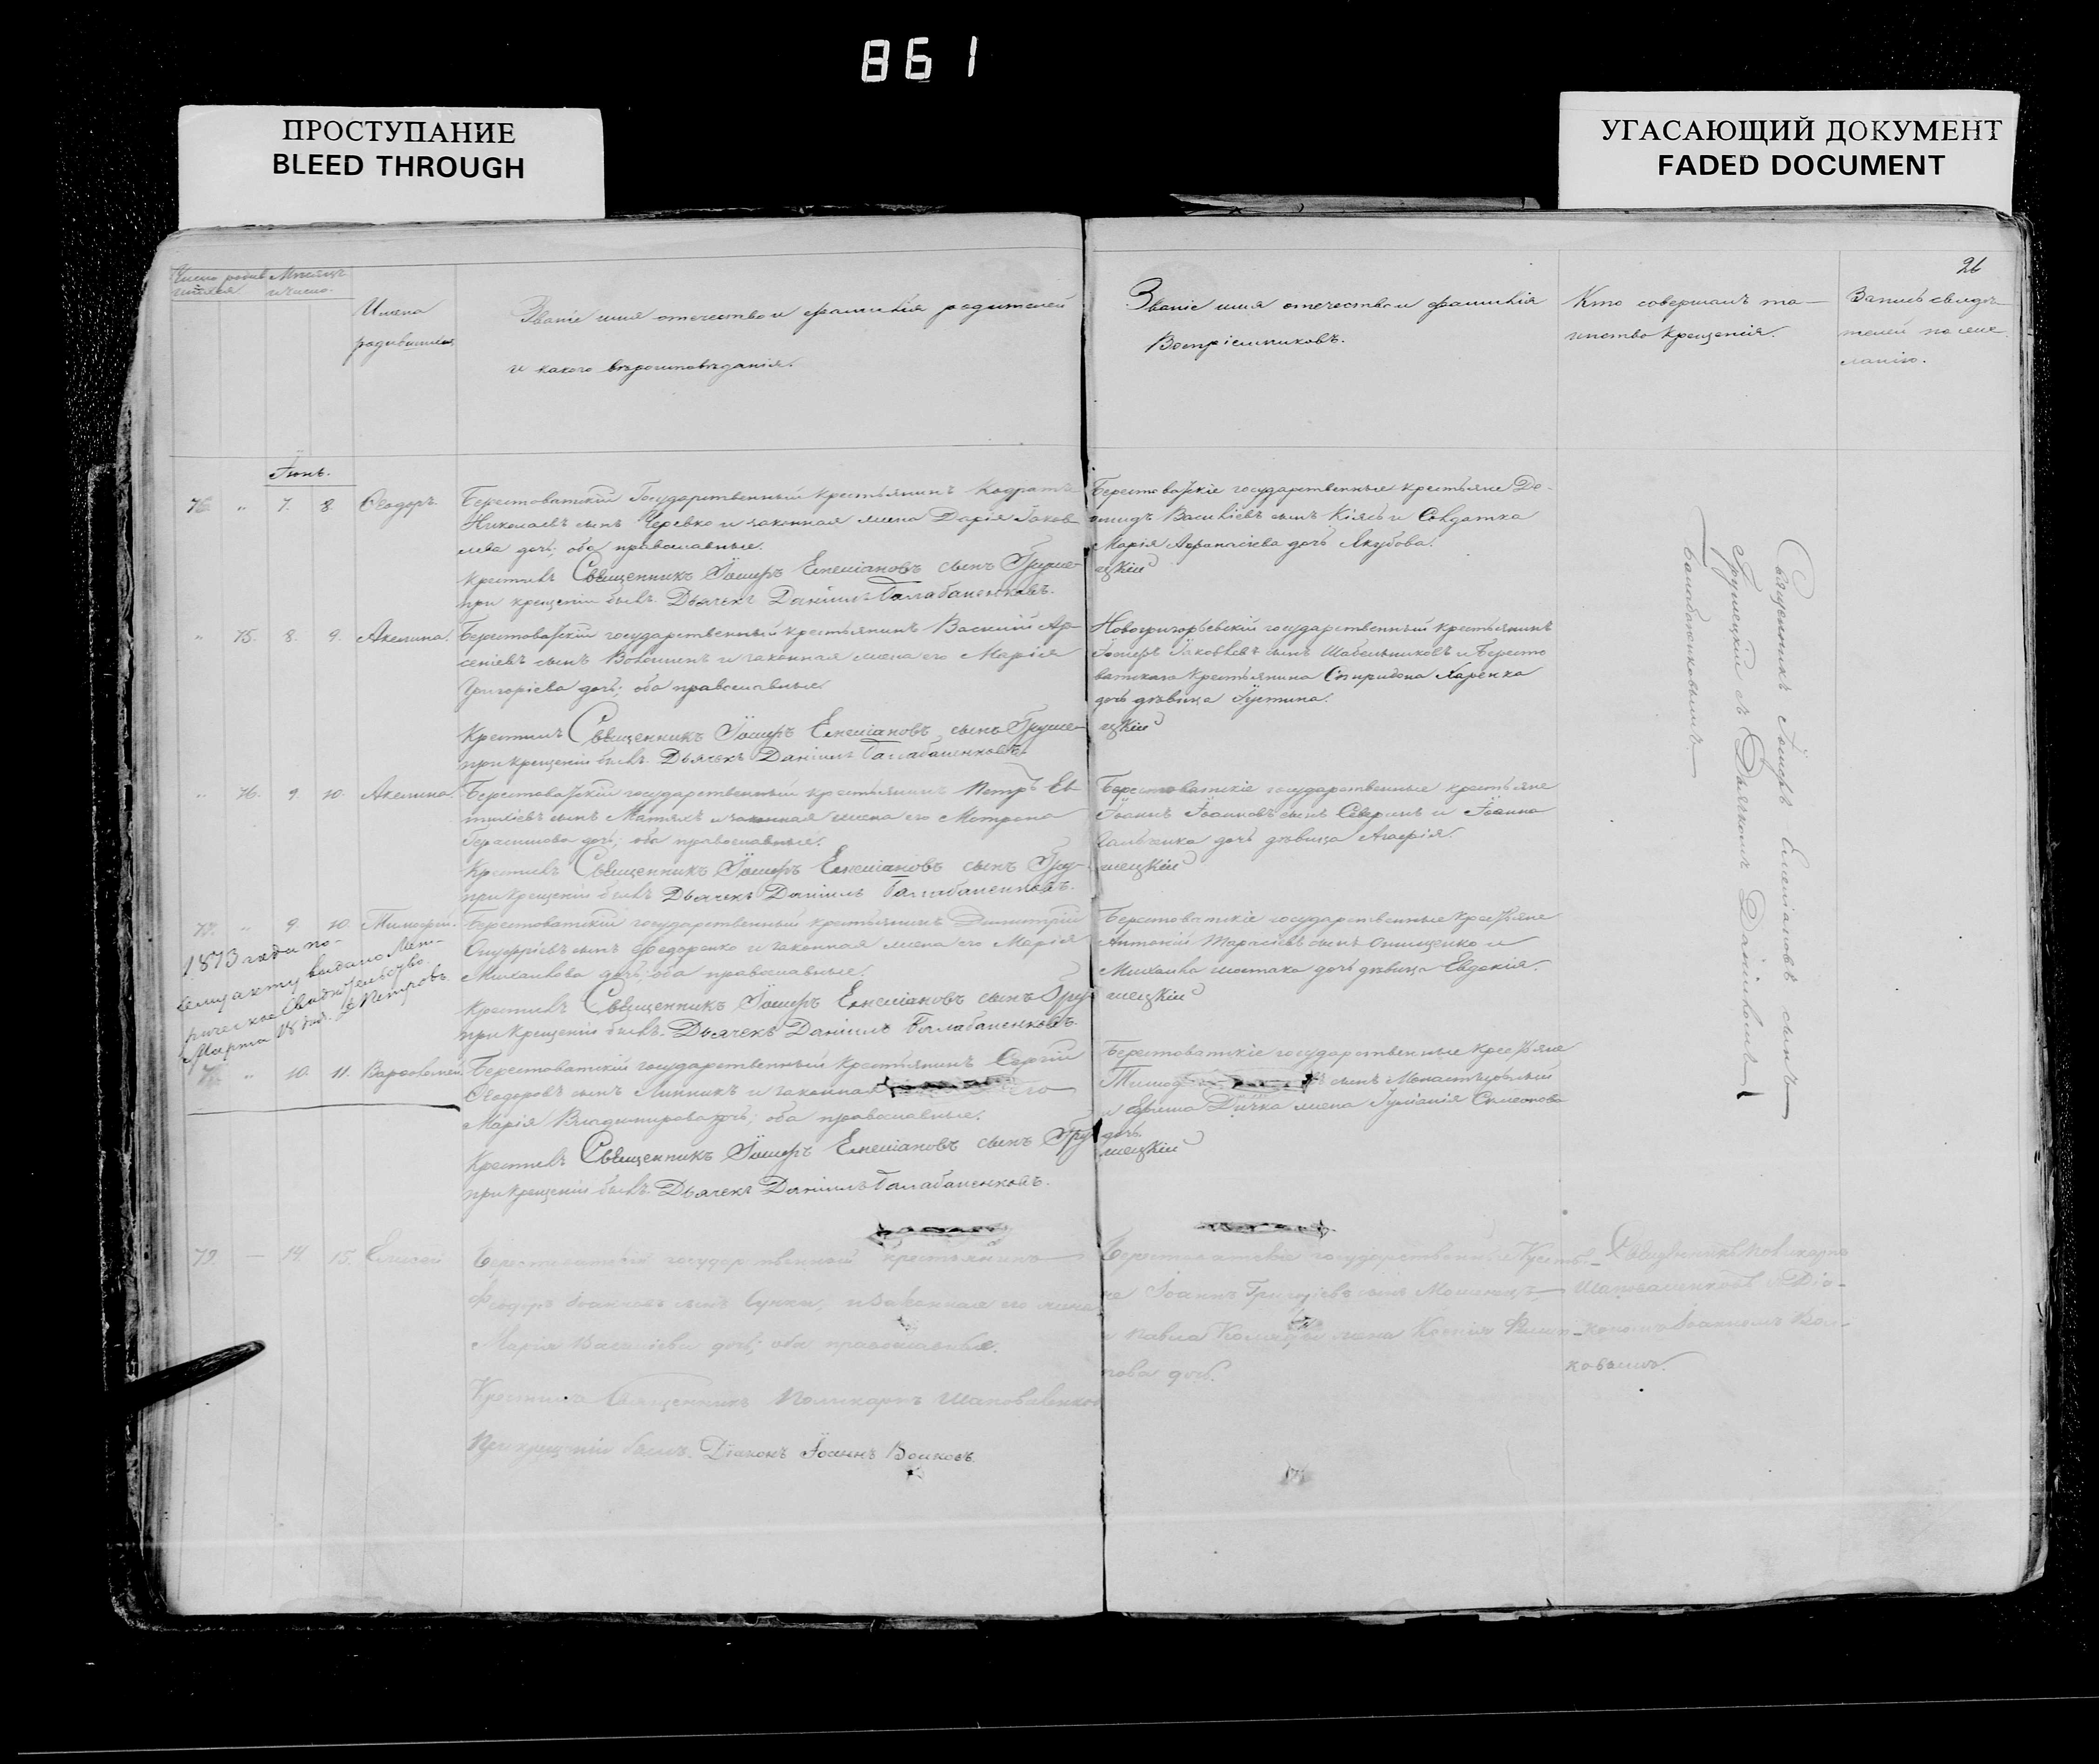 861
ПРОСТУПАНИЕ
BLEED THROUGH
УГАСАЮЩИЙ ДОКУМЕНТ
FADED DOCUMENT
26
Число родив
шихся.
Мѣсяцъ
и число.
Имена
родившихся
Званіе имя отечество и фамилія родителей
и какого вѣроисповѣданія.
Званіе имя отечество и фамилія
Воспріемниковъ.
Кто совершалъ та-
инство крещенія.
Запись свидѣ-
телей по же-
ланію.
Іюнь.
7. 8. Ѳеодоръ.
Берестоватскій Государственный крестьянинъ Кодратъ
Николаевъ сынъ Черевко и законная жена Дарія Іаков
лева дочь; оба православные.
Крестилъ Священникъ Іосифъ Емеліановъ сынъ Груше-
при крещеніи былъ Дьячекъ Даніилъ Балабаненковъ.
Берестоватскіе государственные крестьяне Де-
мидъ Василіевъ сынъ Кіясь и Солдатка
Марія Афанасіева дочь Якубова.
цкій
" 75. 8. 9. Акелина.
Берестоватскій государственный крестьянинъ Василій Ар-
сеніевъ сынъ Волошинъ и законная жена его Марія
Григоріева дочь; оба православные.
Крестилъ Священникъ Іосифъ Емеліановъ сынъ Груше-
при крещеніи былъ Дьячекъ Даніилъ Балабаненковъ.
Новогригорьевскій государственный крестьянинъ
Іосифъ Яковлевъ сынъ Шабельниковъ и Бересто
ватскаго крестьянина Спиридона Ларенка
дочь дѣвица Іустина.
цкій
" 76. 9. 10. Акелина.
Берестоватскій государственный крестьянинъ Петръ Ев
тихіевъ сынъ и законная жена его Мотрона
Герасимова дочь; оба православные.
Крестилъ Священникъ Іосифъ Емеліановъ сынъ Гру-
при крещеніи былъ Дьячекъ Даніилъ Балабаненковъ.
Берестоватскіе государственные крестьяне
Іоаннъ Іоанновъ сынъ Северинъ и Іоанна
дочь дѣвица Агафія.
шецкій
77. " 9. 10. Тимофей.
Берестоватскій государственный крестьянинъ Димитрій
Онуфріевъ сынъ Федоренко и законная жена его Марія
Михаилова дочь; оба православные.
Крестилъ Священникъ Іосифъ Емеліановъ сынъ Гру-
при крещеніи былъ Дьячекъ Даніилъ Балабаненковъ.
Берестоватскіе государственные крестьяне
Антоній Тарасіевъ сынъ Онищенко и
Михаила Шостака дочь дѣвица Евдокія.
шецкій
1873 года по
сему акту выдано Мет-
рическое Свидѣтельство
Марта 18 дня. Петровъ.
" 10. 11. Варѳоломей.
Берестоватскій государственный крестьянинъ Сергій
Ѳеодоровъ сынъ Линникъ и законная его
Марія Владимирова дочь; оба православные.
Крестилъ Священникъ Іосифъ Емеліановъ сынъ Гру-
при крещеніи былъ Дьячекъ Даніилъ Балабаненковъ.
Берестоватскіе государственные крестьяне
сынъ Монастырный
и Ефима Дичка жена Іуліанія Симеонова
дочь.
шецкій
Священникъ Іосифъ Емеліановъ сынъ
Грушецкій съ Дьячкомъ Даніиломъ
Балабаненковымъ
79. — 14. 15. Елисей
Берестоватскій государственный крестьянинъ
Феодоръ Іоанновъ сынъ и законная его жена
Марія Василіева дочь; оба православные.
Крестилъ Священникъ Поликарпъ Шаповаленковъ
При крещеніи былъ Діаконъ Іоаннъ Волковъ.
Берестоватскіе государственные Кресть-
не Іоаннъ Григоріевъ сынъ
и Павла жена Ксенія Филип-
пова дочь.
Священникъ Поликарпъ
Шаповаленковъ съ Діа-
кономъ Іоанномъ Вол-
ковымъ.